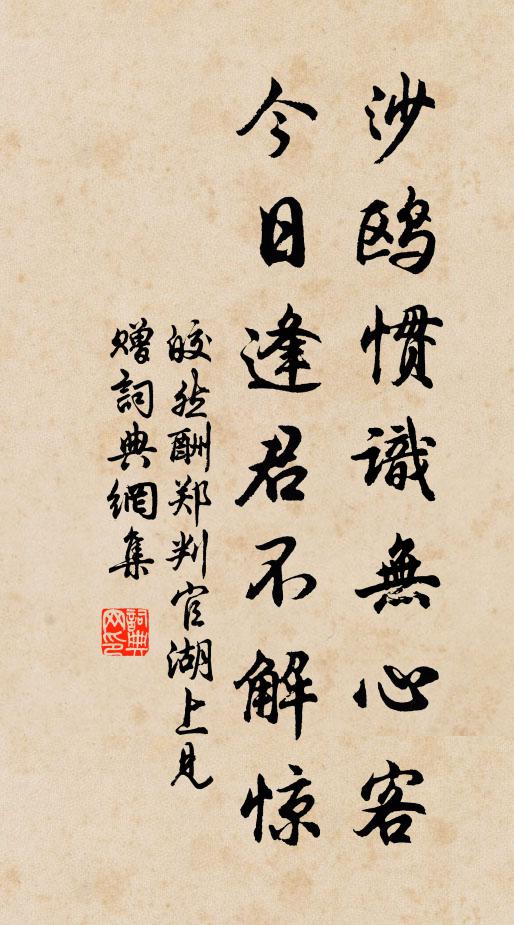 沙鸥惯識無心客
今日逢君不解惊
皎然酬郑判官湖上見
赠詞典網集
詞典
网印